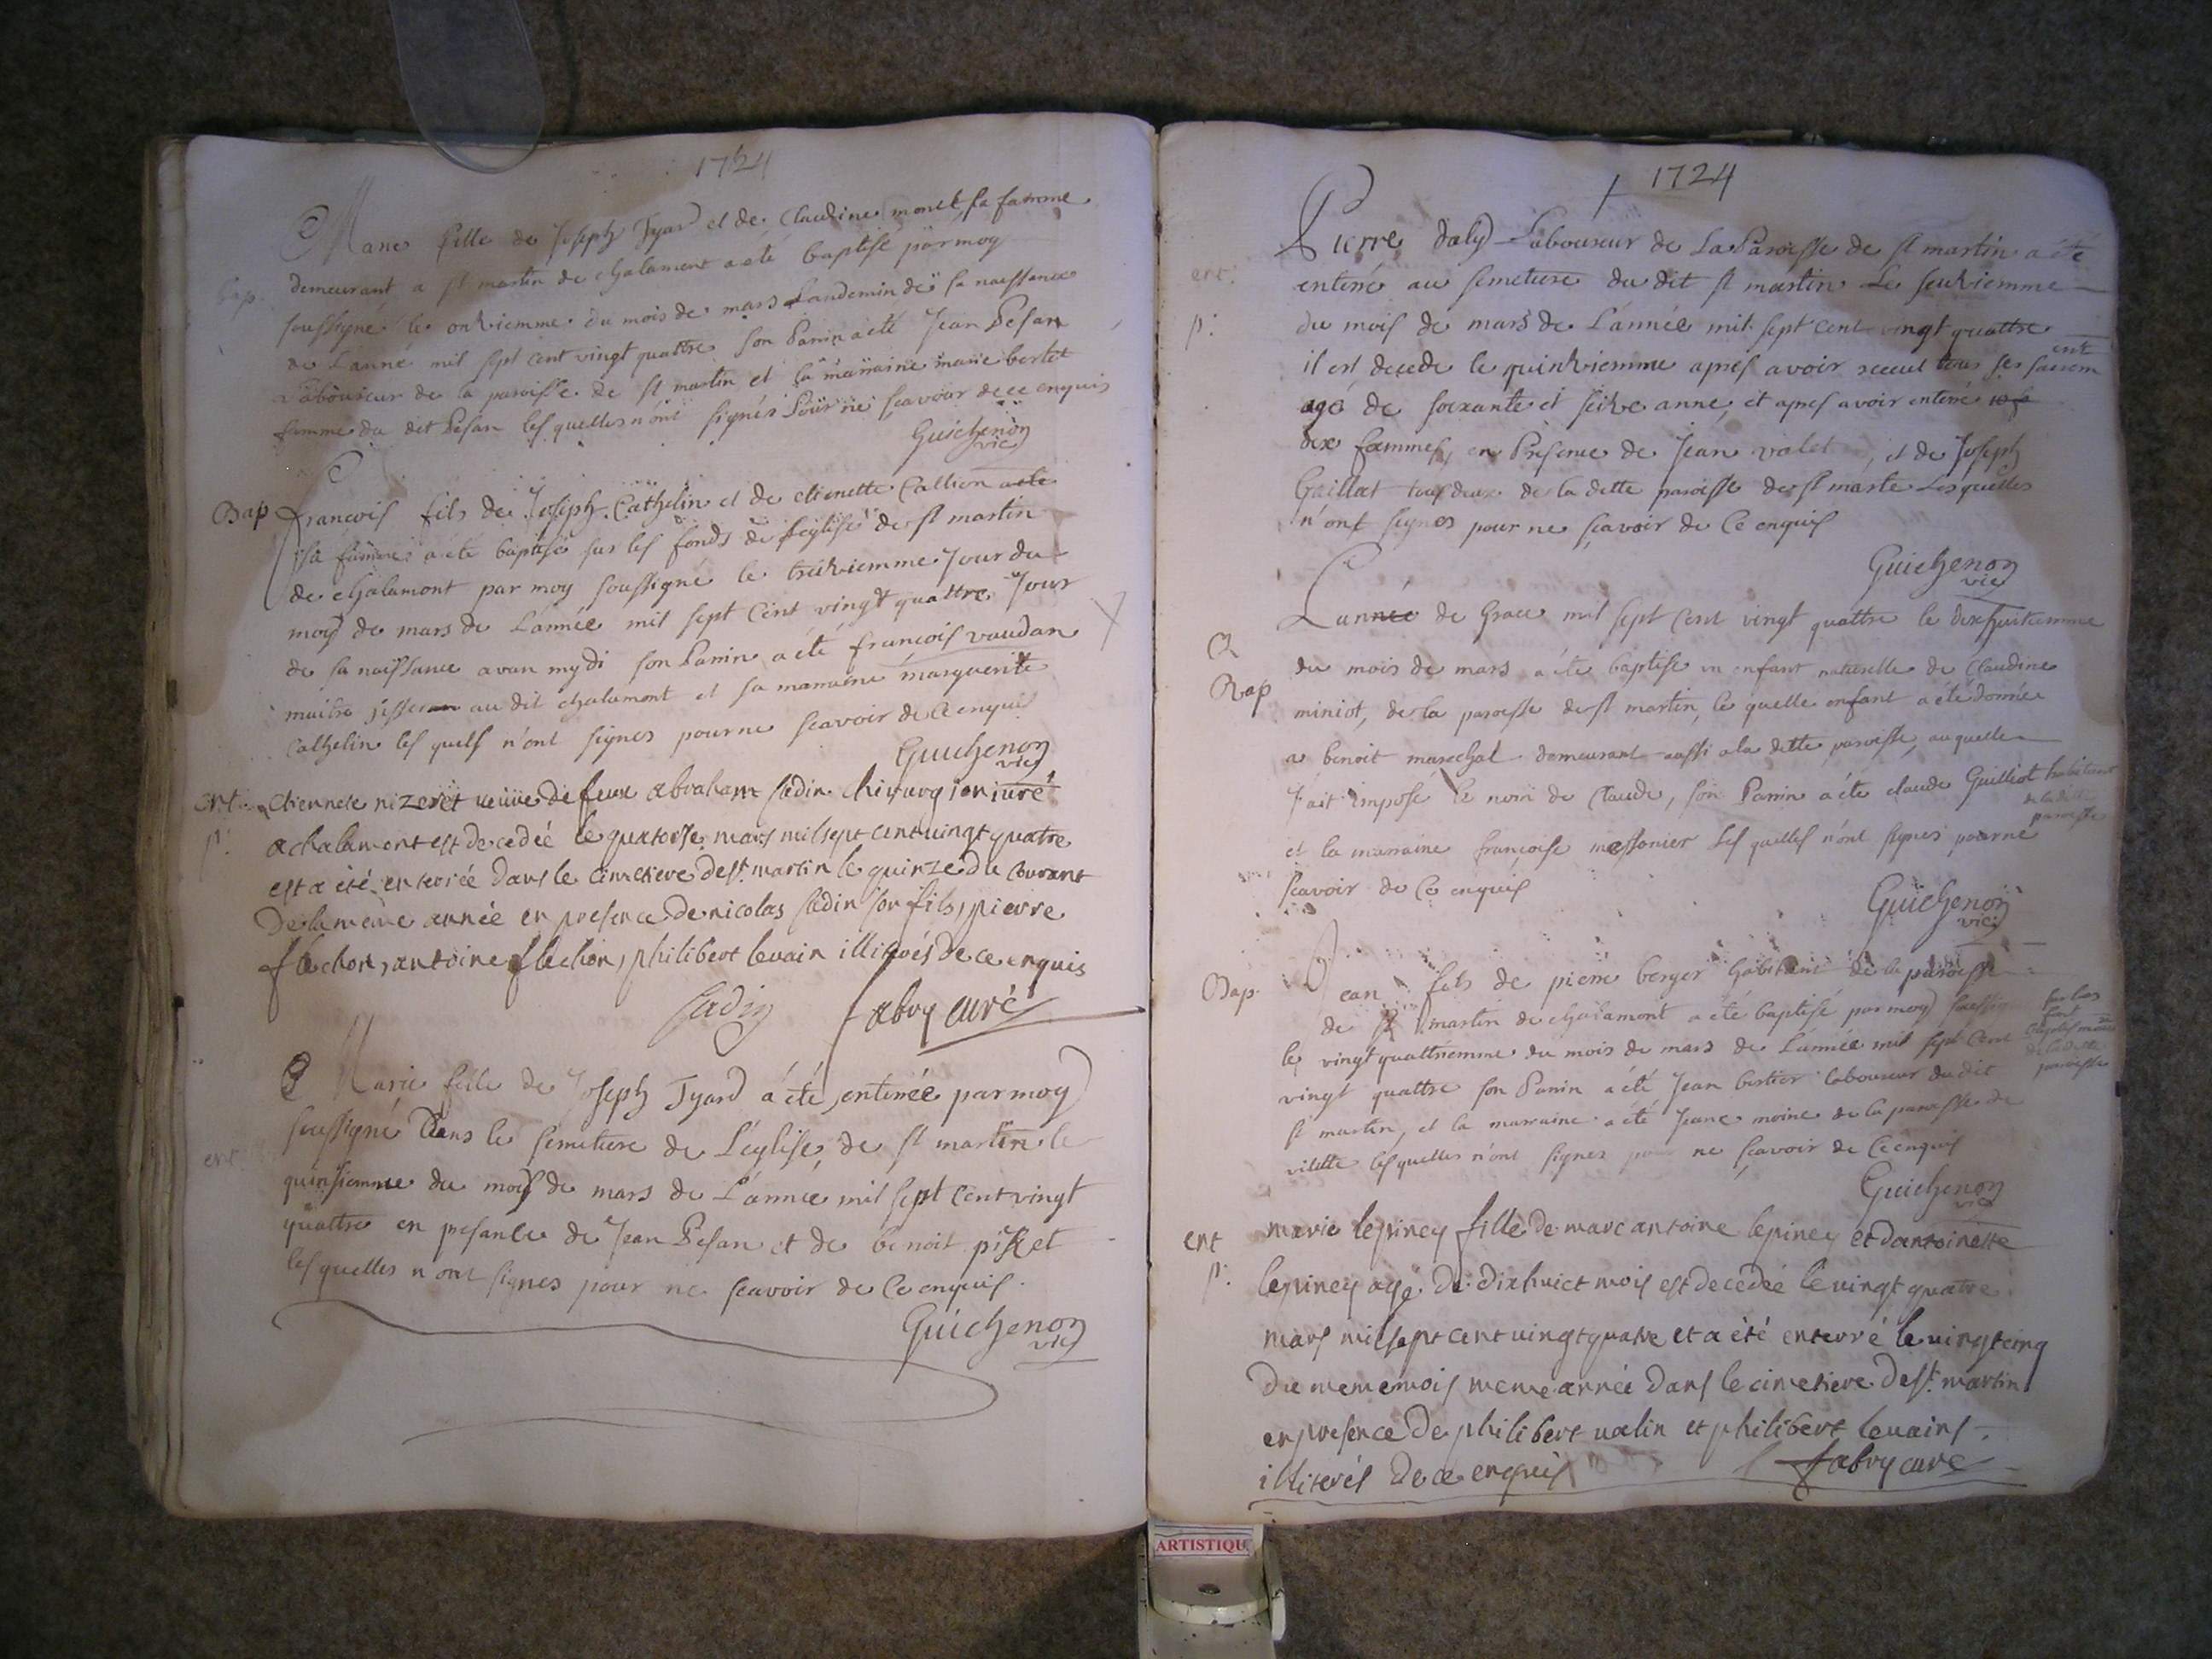 1724
Marie fille de Joseph Tyard et de Claudine monet sa famme
bap. demeurant a st martin de chalamont a eté baptisé par moy
soussigné le onkiemme du mois de mars Landemin de sa naissance
de L'anné mil sept cent vingt quattre son Parin a eté Jean Pesan
Laboureur de la paroisse de st martin et sa marraine marie bertet
femme du dit Pesan les quelles n'ont signés Pour ne scavoir de ce enquis
Guichenon
vic
Bap francois fils de Joseph Cathelin et de etienette Callion a eté
sa famme a eté baptisé sus les fonds de l'eglise de st martin
de chalamont par moy soussigne le treikiemme Jour du
moy de mars de L'année mil sept Cent vingt quattre Jour
de sa naissance avan mydi son Parin a eté francois vaudan
maitre au dit chalamont et sa marraine marguerite
Cathelin les quels n'ont signes pour ne scavoir de Ce enquis
Guichenon
vic
ent. etiennete nizeret veuve de feux abraham sadin chirurgien juré
p: a chalamont est decedeé le quatorse mars mil sept cent vingt quatre
est a été enterrée dans le cimetiere de st. martin le quinze du courant
de la meme année en presence de nicolas sadin son fils, pierre
flechon, antoine flechon, philibert levain illiterés de ce enquis
sadin fabry curé
Marie fille de Joseph Tyard a été enterrée par moy
soussigné Dans le semetiere de L'eglise de st martin le
ent quinsiemme du moy de mars de L'année mil sept Cent vingt
quattre en presance de Jean Pesan et de benoit piset
les quelles n'ont signes pour ne scavoir de Ce enquis.
Guichenon
vic
1724
Pierre daly Laboureur de La Paroisse de st martin a été
ent. enterré au semetiere du dit st martin Le seikiemme
p: du mois de mars de L'année mil sept cent vingt quattre
il est decede le quinkiemme apres avoir receut tous ses sacrem
ent
agé de soixante et seike anné, et apres avoir enterré
dix fammes, en Presence de Jean valet, et de Joseph
Gaillat tous deux de la ditte paroisse de st marte Les quelles
n'ont signes pour ne scavoir de Ce enquis
Guichenon
vic
L'année de Grace mil sept Cent vingt quattre le dixhuitiemme
du mois de mars a été baptise un enfant naturelle de Claudine
Bap miniot, de la paroisse de st martin, le quelle enfant a eté donnée
a benoit marechal demeurant aussi a la ditte paroisse, au quelle
J'ait imposé le nom de Claude, son Parin a été claude Guilliot habitant
de la ditte
paroisse
et la marraine francoise messonier Les quelles n'ont signes pour ne
scavoir de Ce enquis
Guichenon
vic
Bap Jean fils de pierre berger habitant de la paroisse
de st martin de chalamont a été baptisé par moy soussigne sur les
font
baptismaux
de la ditte
paroisse
le vingtquattriemme du mois de mars de L'année mil sept Cent
vingt quattre son Parin a été Jean bertier laboureur du dit
st martin, et la marraine a eté Jeane moine de la paroisse de
vilette les quelles n'ont signes pour ne scavoir de Ce enquis
Guichenon
vic
ent marie lepiney fille de marc antoine lepiney et d'antoinette
p: lepiney agé de dixhuict mois est decedeé le vingt quatre
mars mil sept cent vingt quatre et a été enterré le vingt cinq
du meme mois meme année dans le cimetiere de st. martin
en presence de philibert valin et philibert levains
illiterés de ce enquis fabry curé
ARTISTIQU